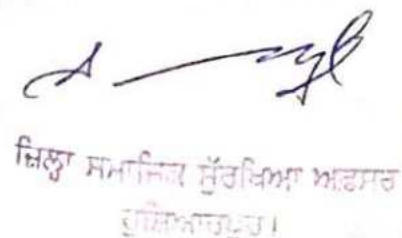 ਜ਼ਿਲ੍ਹਾ ਸਮਾਜਿਕ ਸੁੱਰਖਿਆ ਅਫਸਰ
ਹੁਸ਼ਿਆਰਪੁਰ।